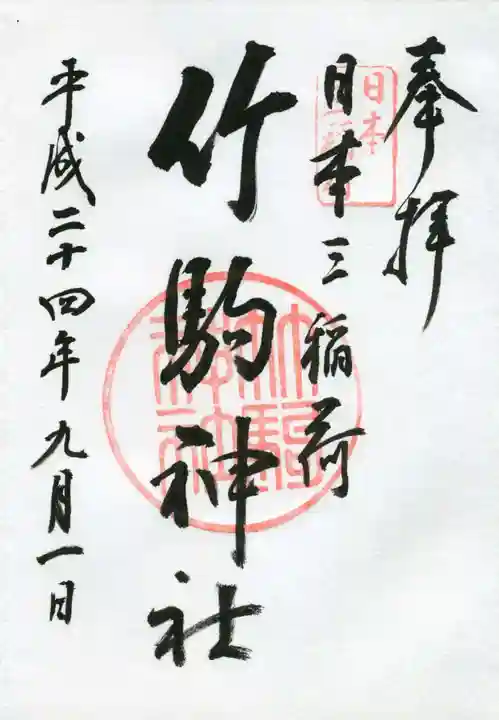 奉拝
日本三稲荷
竹駒神社
平成二十四年九月一日
日本
竹駒
神社